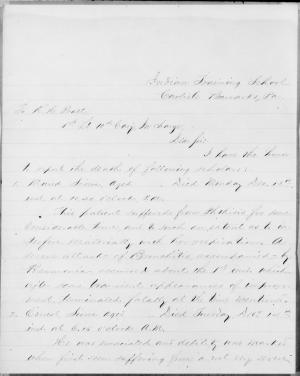 Indian Training School
Carlisle Barracks, Pa.
To R. H. Pratt
1st Lt 10th Cav, In Charge,
Dear Sir:
I have the honor
to report the death of following scholars:
1. Maud Sioux aged Died Monday Dec. 13th
inst. at o'clock P.M.
This patient suffered from Phthisis for some
considerable time, and to such an extent as to in-
terfere materially with her A
severe attack of Bronchitis, accompanied by
Pneumonia, occurred about the 1st which
after some transient appearances of improve-
ment, terminated fatally at the time mentioned.
2. Ernest Sioux aged Died Tuesday Dec. 14th
inst at 6.45 o'clock A.M.
He was emaciated and debility was marked
when first seen suffering from a very severe